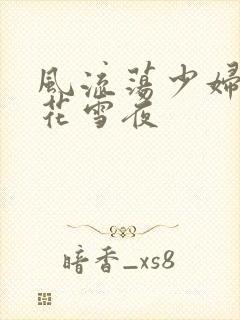 風流蕩少婦
花雪夜
暗香_xs8